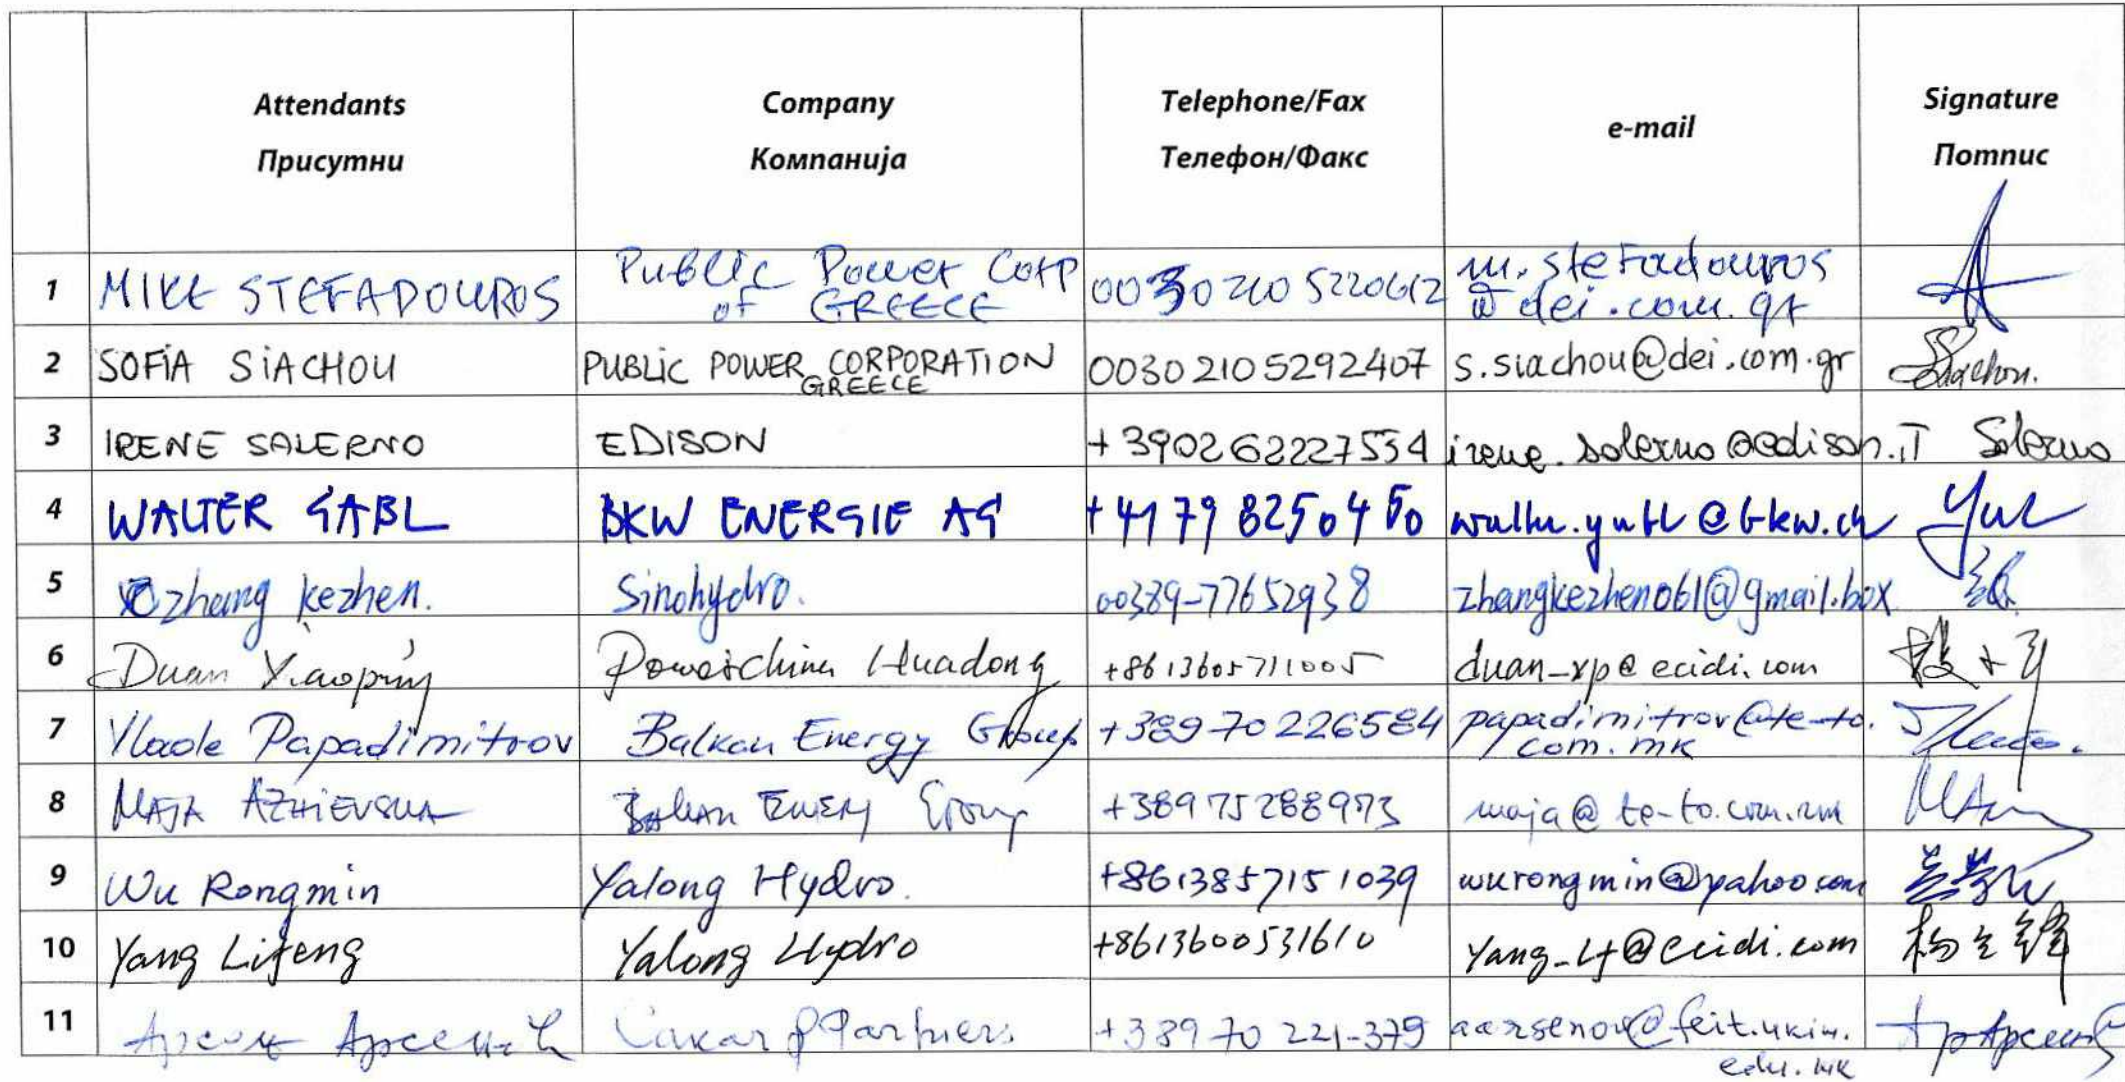 Attendants Company Telephone/Fax e-mail Signature
Присутни Компанија Телефон/Факс Потпис
1 MIKE STEFADOUROS Public Power Corp of GREECE 0030 210 5220612 m.stefadouros @dei.com.gr
2 SOFIA SIACHOU PUBLIC POWER CORPORATION GREECE 0030 210 5292407 s.siachou@dei.com.gr Siachou.
3 IRENE SALERNO EDISON +390262227554 irene.salerno@edison.iT Salerno
4 WALTER GABL BKW ENERGIE AG +41 79 8250450 walter.gabl@bkw.ch
5 zhang kezhen. Sinohydro. 00389-77652938 zhangkezhen061@gmail.box
6 Duan Xiaoping Powerchina Huadong +8613605711005 duan_xp@ecidi.com
7 Vlade Papadimitrov Balkan Energy Group +389 70 226584 papadimitrov@te-to.com.mk
8 MAJA AZHIEVSKA Balkan Energy Group +389 75 288973 maja@te-to.com.mk
9 Wu Rongmin Yalong Hydro. +8613857151039 wurongmin@yahoo.com
10 Yang Lifeng Yalong Hydro +8613600531610 Yang_lf@ecidi.com
11 Арсен Арсенов Cakar & Partners +389 70 221-379 aarsenov@feit.ukim.edu.mk